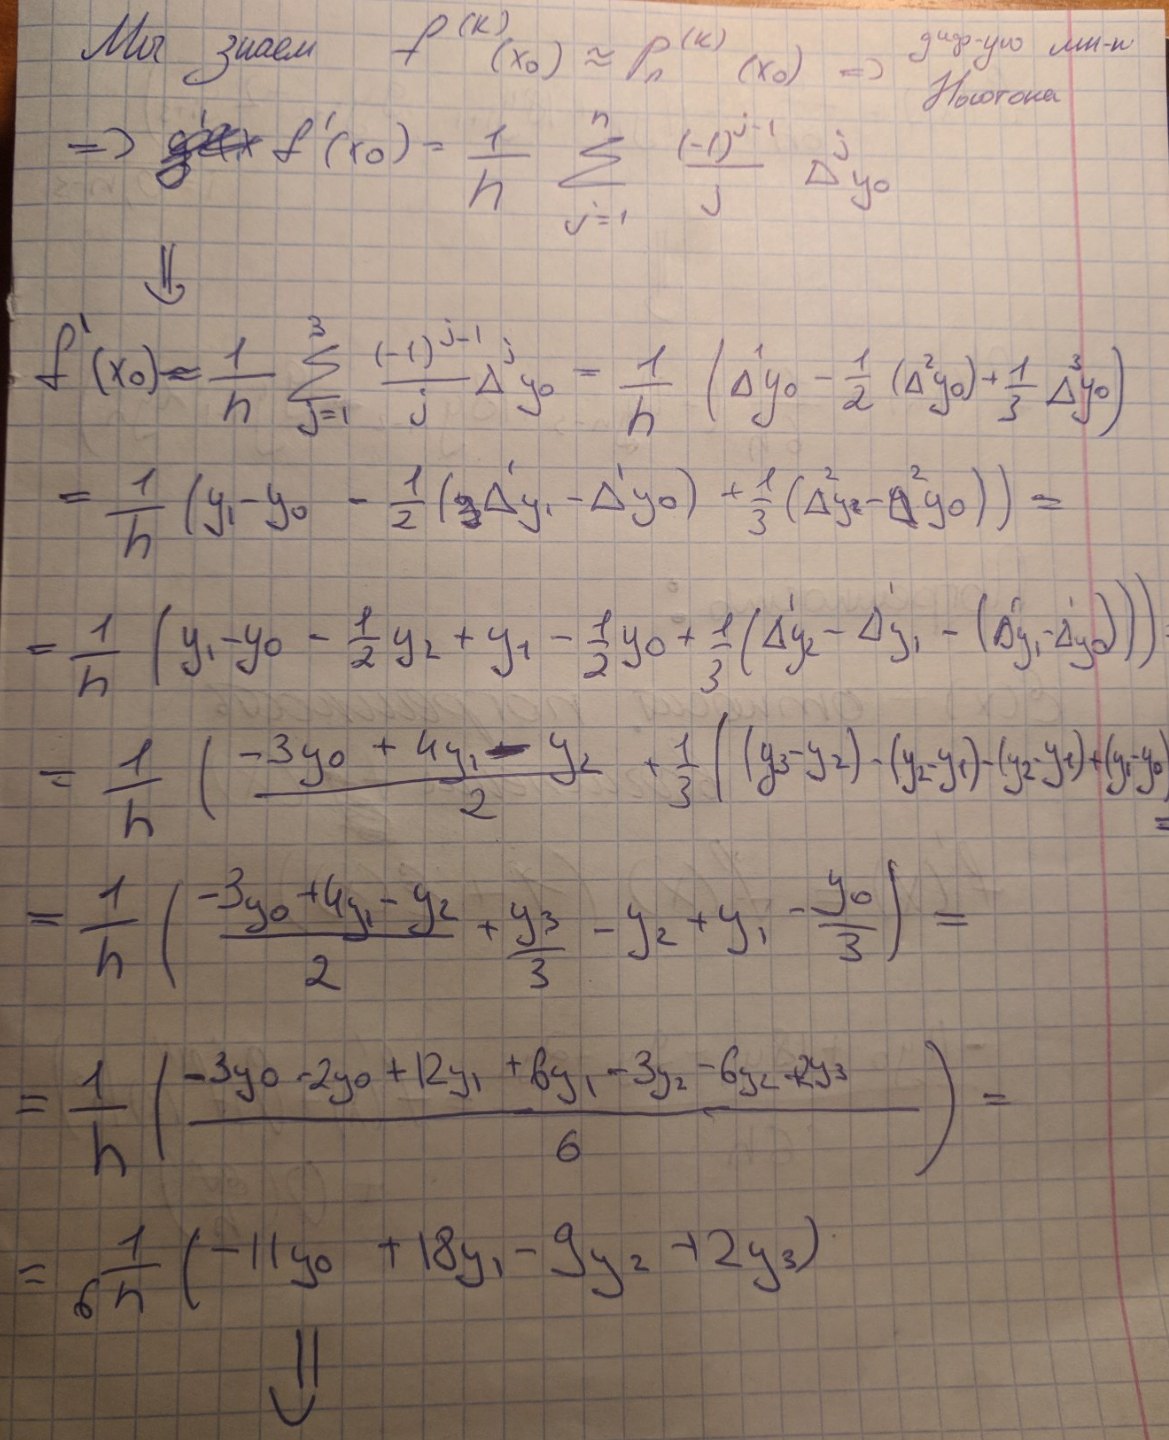 Мы знаем f^(k)(x₀) ≈ Pₙ^(k)(x₀) => диф-ую мн-н Ньютона
=> f'(x₀) = 1/h ∑_{j=1}^{n} (-1)^{j-1}/j Δ^j y₀
⇓
f'(x₀) ≈ 1/h ∑_{j=1}^{3} (-1)^{j-1}/j Δ^j y₀ = 1/h (Δ¹y₀ - 1/2 (Δ²y₀) + 1/3 Δ³y₀)
= 1/h (y₁ - y₀ - 1/2 (Δ¹y₁ - Δ¹y₀) + 1/3 (Δ²y₂ - Δ²y₀)) =
= 1/h (y₁ - y₀ - 1/2 y₂ + y₁ - 1/2 y₀ + 1/3 (Δ¹y₂ - Δ¹y₁ - (Δ¹y₁ - Δ¹y₀)))
= 1/h ((-3y₀ + 4y₁ - y₂)/2 + 1/3 ((y₃ - y₂) - (y₂ - y₁) - (y₂ - y₁) + (y₁ - y₀) =
= 1/h ((-3y₀ + 4y₁ - y₂)/2 + y₃/3 - y₂ + y₁ - y₀/3) =
= 1/h ((-3y₀ - 2y₀ + 12y₁ + 6y₁ - 3y₂ - 6y₂ + 2y₃)/6) =
= 1/6h (-11y₀ + 18y₁ - 9y₂ + 2y₃)
⇓